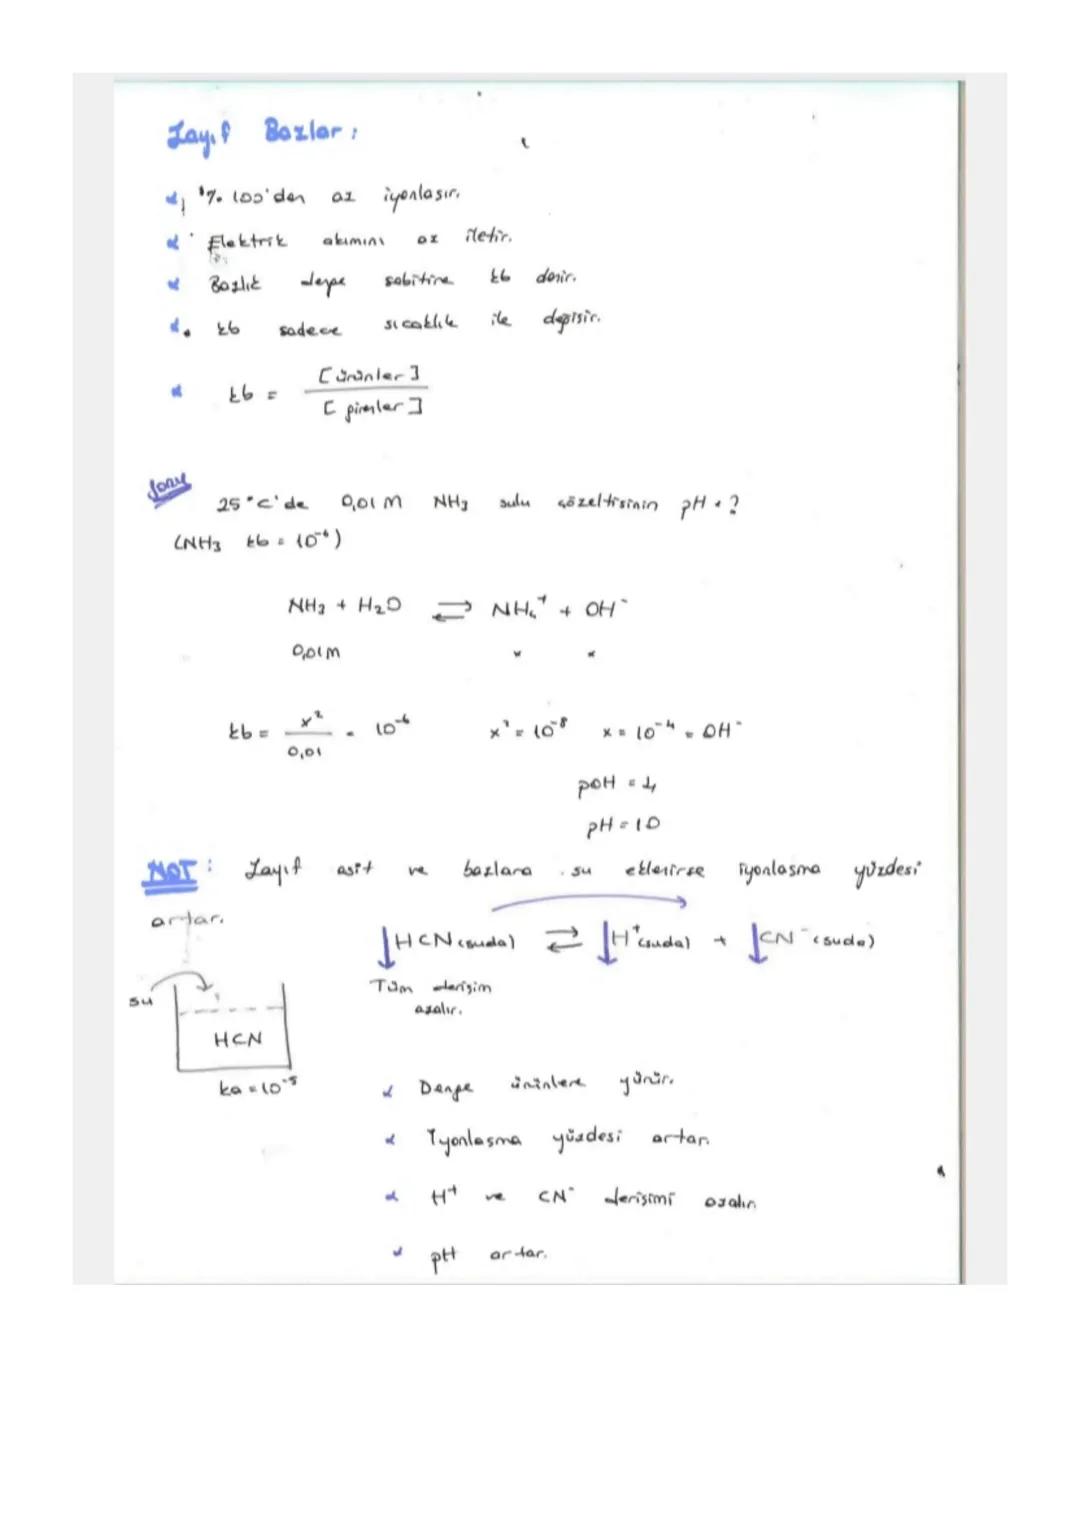 Zayıf Bazlar:
% 100'den az iyonlaşır.
Elektrik akımını az iletir.
Bazlık denge sabitine kb denir.
kb sadece sıcaklık ile değişir.
kb = [ürünler] / [girenler]
Soru
25°C'de 0,01 M NH₃ sulu çözeltisinin pH = ?
(NH₃ kb = 10⁻⁶)
NH₃ + H₂O ⇌ NH₄⁺ + OH⁻
0,01M x x
kb = x² / 0,01 = 10⁻⁶ x² = 10⁻⁸ x = 10⁻⁴ = OH⁻
pOH = 4
pH = 10
NOT: Zayıf asit ve bazlara su eklenirse iyonlaşma yüzdesi
artar.
↓HCN(suda) ⇌ ↓H⁺(suda) + ↓CN⁻(suda)
Tüm derişim
azalır.
su
HCN
ka = 10⁻⁵
Denge ürünlere yürür.
İyonlaşma yüzdesi artar.
H⁺ ve CN⁻ derişimi azalır.
pH artar.